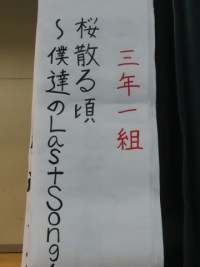 三年一組
桜散る頃
～僕達のLastSong～